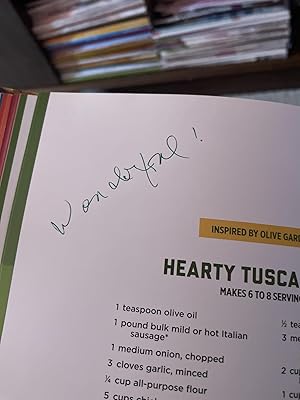 Wonderful!
INSPIRED BY OLIVE
HEARTY
MAKES 6 TO 8
1 teaspoon olive oil
1 pound bulk mild or hot Italian
sausage*
1 medium onion, chopped
3 cloves garlic, minced
¼ cup all-purpose flour
5 cups
½
3
2
1
1